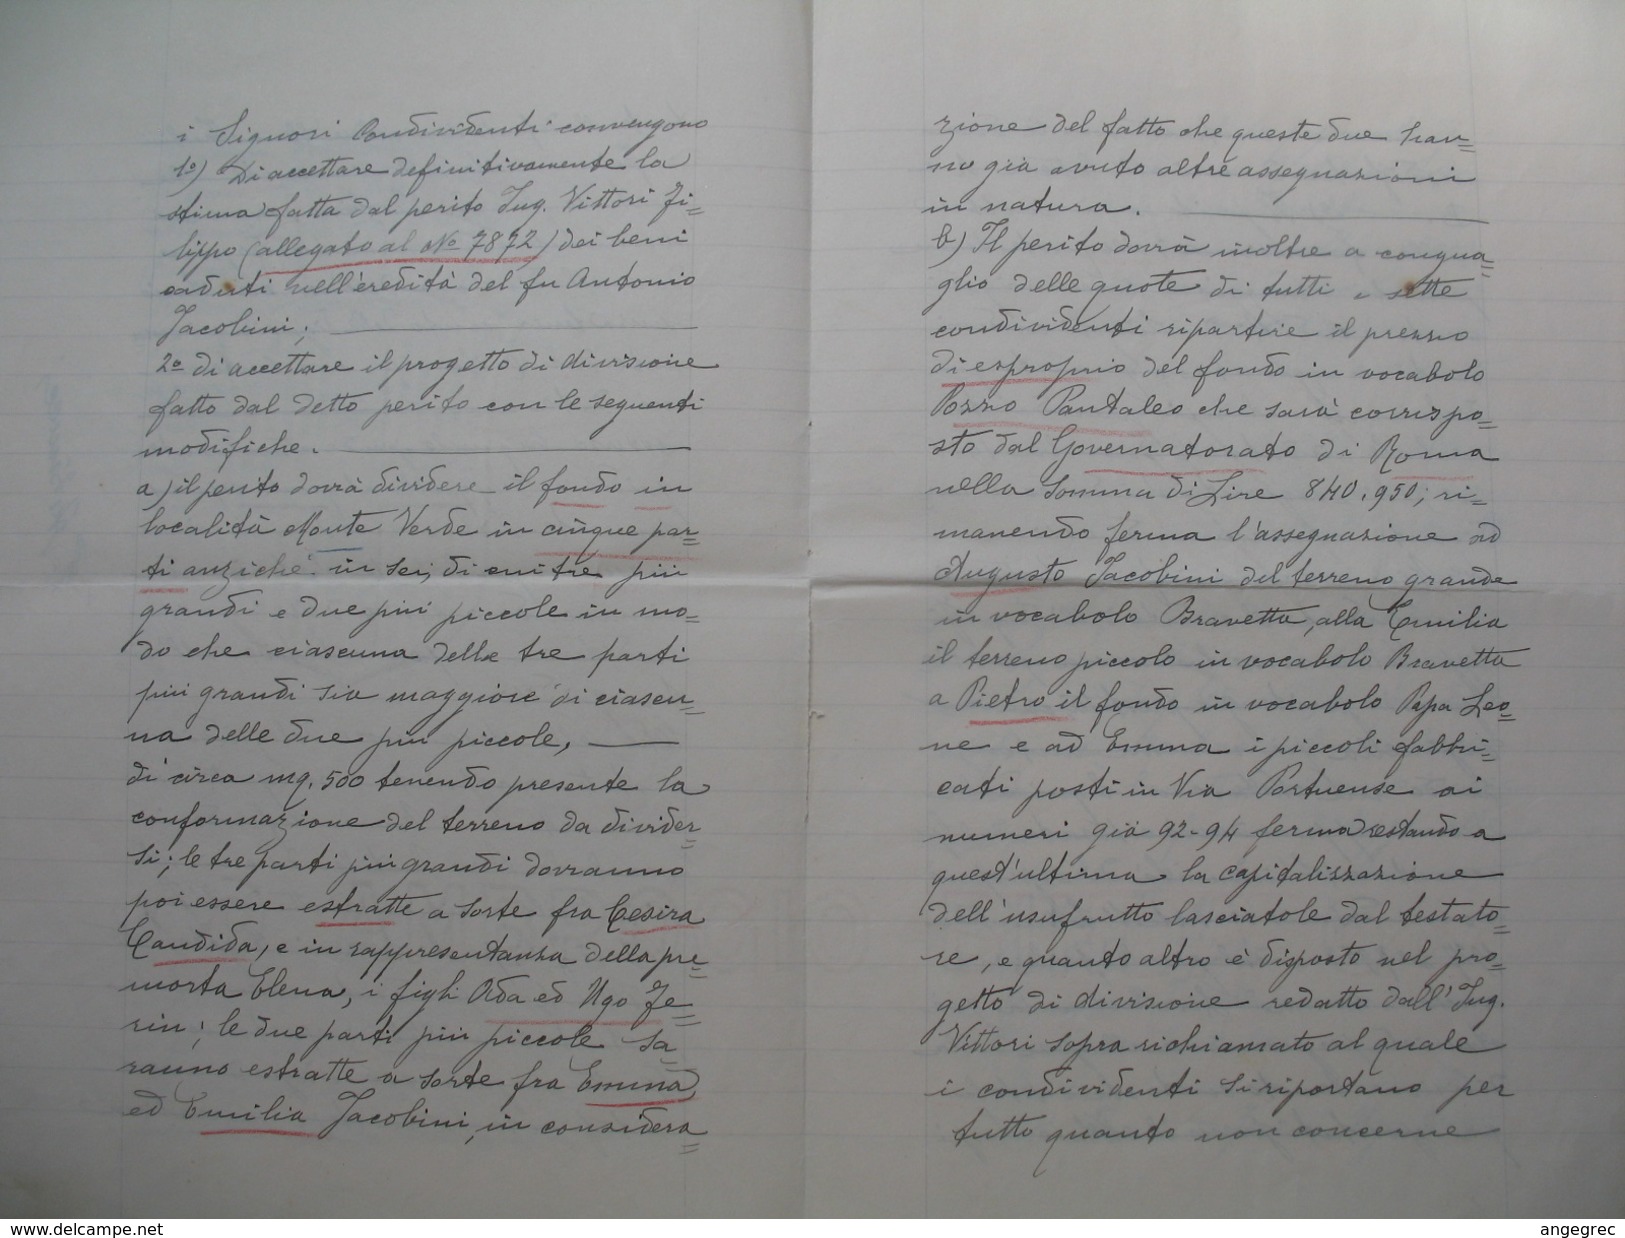 i Signori Condividenti convengono
1º) Di accettare definitivamente la
stima fatta dal perito Ing. Vittori Fi=
lippo (allegato al Nº 7872) dei beni
caduti nell'eredità del fu Antonio
Jacobini;
2º di accettare il progetto di divisione
fatto dal detto perito con le seguenti
modifiche.
a) il perito dovrà dividere il fondo in
località Monte Verde in cinque par=
ti anziché in sei, di cui tre più
grandi e due più piccole in mo=
do che ciascuna delle tre parti
più grandi sia maggiore di ciascu=
na delle due più piccole,
di circa mq. 500 tenendo presente la
conformazione del terreno da divider=
si; le tre parti più grandi dovranno
poi essere estratte a sorte fra Cesira
Candida, e in rappresentanza della pre=
morta Elena, i figli Ada ed Ugo Fe=
rin; le due parti più piccole sa=
ranno estratte a sorte fra Emma
ed Emilia Jacobini, in considera=
zione del fatto che queste due han=
no già avuto altre assegnazioni
in natura.
b) Il perito dovrà inoltre a congua=
glio delle quote di tutti e sette
condividenti ripartire il prezzo
di esproprio del fondo in vocabolo
Pozzo Pantaleo che sarà corrispo=
sto dal Governatorato di Roma
nella somma di Lire 840.950; ri=
manendo ferma l'assegnazione ad
Augusto Jacobini del terreno grande
in vocabolo Bravetta, alla Emilia
il terreno piccolo in vocabolo Bravetta
a Pietro il fondo in vocabolo Papa Leo=
ne e ad Emma i piccoli fabbri=
cati posti in Via Portuense ai
numeri già 92-94 ferma restando a
quest'ultima la capitalizzazione
dell'usufrutto lasciatole dal testato=
re, e quanto altro è disposto nel pro=
getto di divisione redatto dall'Ing.
Vittori sopra richiamato al quale
i condividenti si riportano per
tutto quanto non concerne
www.delcampe.net
angegrec